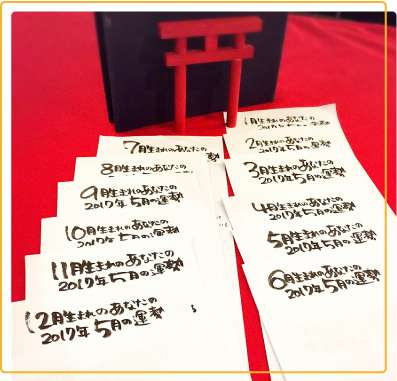 7月生まれのあなたの
8月生まれのあなたの
9月生まれのあなたの
2017年5月の運勢
10月生まれのあなたの
2017年5月の運勢
11月生まれのあなたの
2017年5月の運勢
12月生まれのあなたの
2017年5月の運勢
1月生まれのあなたの
2月生まれのあなたの
2017年5月の運勢
3月生まれのあなたの
2017年5月の運勢
4月生まれのあなたの
2017年5月の運勢
5月生まれのあなたの
2017年5月の運勢
6月生まれのあなたの
2017年5月の運勢